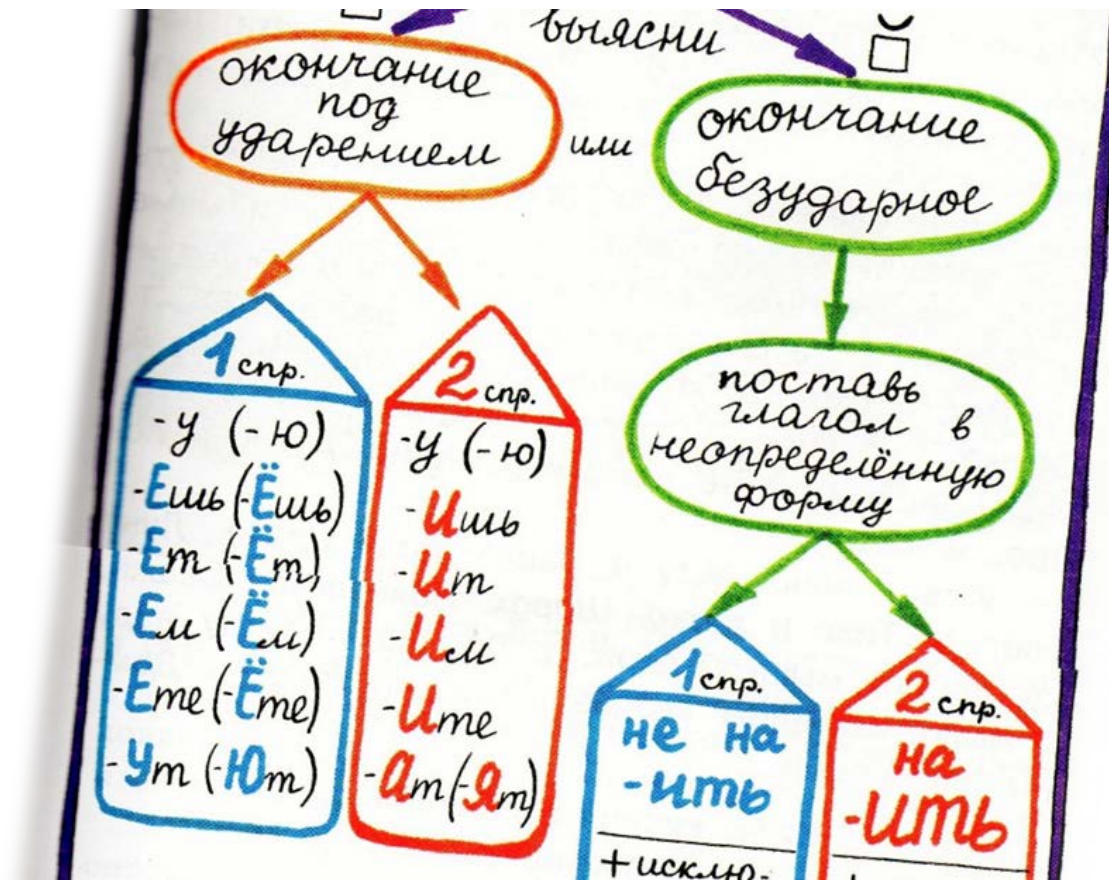 выясни
окончание
под
ударением
или
окончание
безударное
1 спр.
-у (-ю)
-Ешь (-Ёшь)
-Ет (-Ёт)
-Ем (-Ём)
-Ете (-Ёте)
-Ут (-Ют)
2 спр.
-у (-ю)
-Ишь
-Ит
-Им
-Ите
-Ат (-Ят)
поставь
глагол в
неопределённую
форму
1 спр.
не на
-ить
+ исклю-
2 спр.
на
-ить